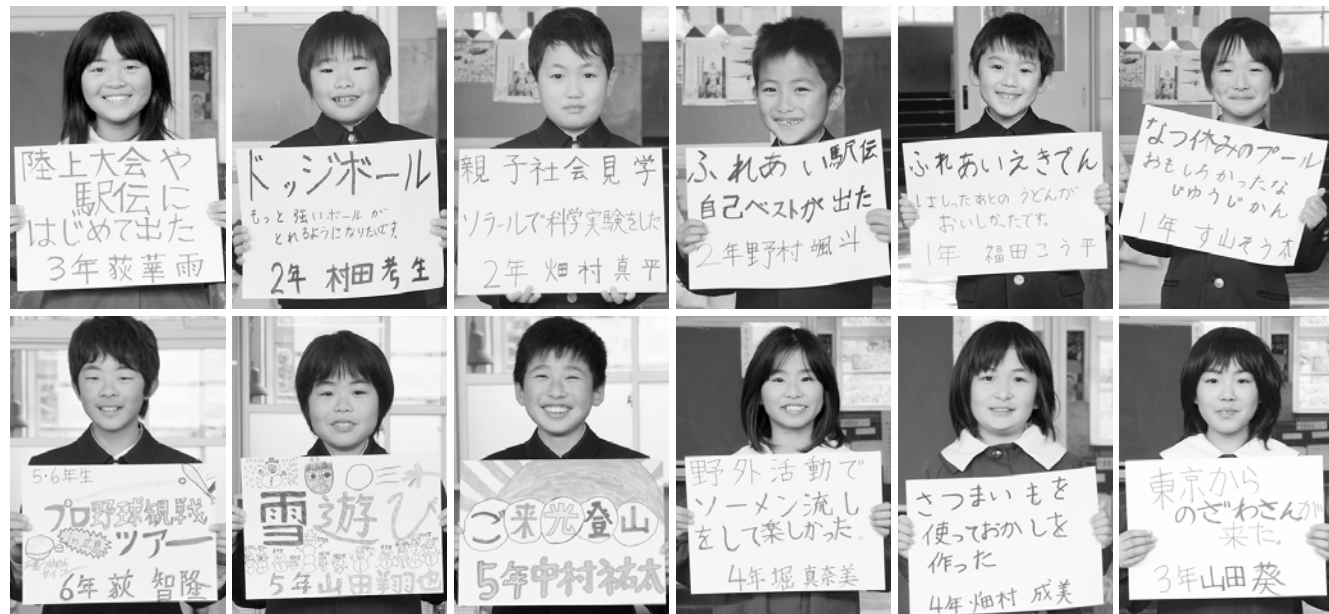 陸上大会や
駅伝に
はじめて出た
3年荻華雨
ドッジボール
もっと強いボールが
とれるようになりたいです。
2年 村田考生
親子社会見学
ソラールで科学実験をした
2年 畑村真平
ふれあい駅伝
自己ベストが出た
2年野村颯斗
ふれあいえきでん
はしったあとのうどんが
おいしかったです。
1年 福田こう平
なつ休みのプール
おもしろかったな
じゆうじかん
1年 す山そう太
5・6年生
プロ野球観戦
ツアー
6年 荻 智隆
雪遊び
5年山田翔也
ご来光登山
5年中村祐太
野外活動で
ソーメン流し
をして楽しかった。
4年堀真奈美
さつまいもを
使っておかしを
作った
4年畑村成美
東京から
のざわさんが
来た。
3年山田葵